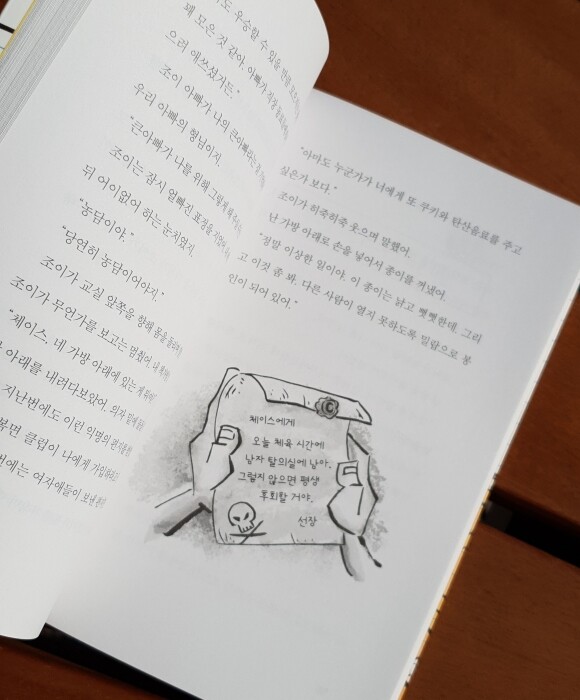 도 우승할 수 있을 만큼
꽤 모은 것 같아. 아빠가
으려 애쓰셨거든."
조이 아빠가 나의 큰아빠라는
우리 아빠의 형님이지.
"큰아빠가 나를 위해 그렇게
조이는 잠시 얼빠진 표정을
뒤 어이없어 하는 눈치였지.
"농담이야."
"당연히 농담이어야지."
조이가 교실 앞쪽을 향해 몸을
조이가 무언가를 보고는 멈췄어. 내
"체이스, 네 가방 아래에 있는
아래를 내려다보았어. 의자 밑에
지난번에도 이런 익명의 편지를
복면 클럽이 나에게 가입하라고
번에는 여자애들이 보낸
"아마도 누군가가 너에게 또 쿠키와 탄산음료를 주고
싶은가 보다."
조이가 히죽히죽 웃으며 말했어.
난 가방 아래로 손을 넣어서 종이를 꺼냈어.
"정말 이상한 일이야. 이 종이는 낡고 뻣뻣한데. 그리
고 이것 좀 봐. 다른 사람이 열지 못하도록 밀랍으로 봉
인이 되어 있어."
체이스에게
오늘 체육 시간에
남자 탈의실에 남아.
그렇지 않으면 평생
후회할 거야.
선장